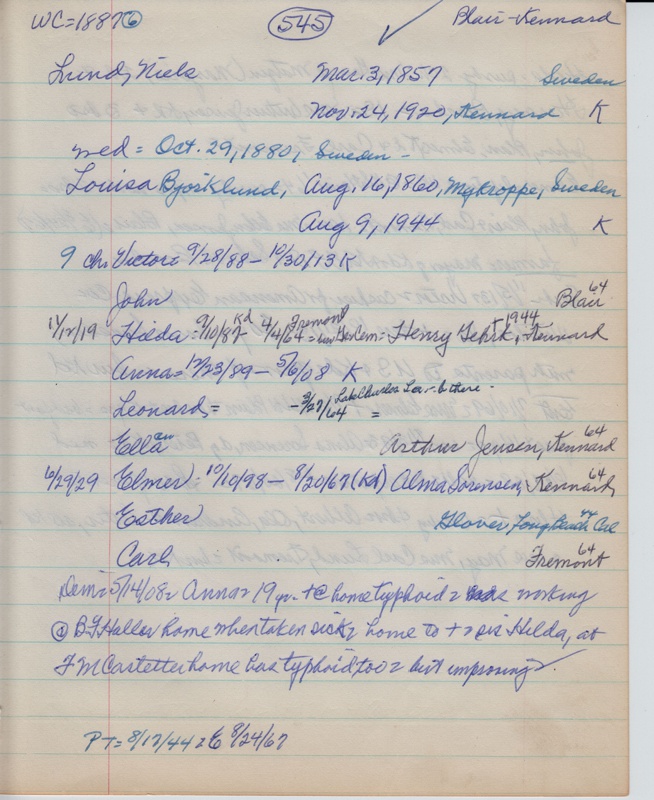 WC=1887⑥ 545 ✓ Blair-Kennard
Lund, Niels Mar. 3, 1857 Sweden
Nov. 24, 1920, Kennard K
med = Oct. 29, 1880, Sweden -
Louisa Bjorklund, Aug. 16, 1860, Mykroppe, Sweden
Aug 9, 1944 K
9 ch. Victor = 9/28/88 - 10/30/13 K
John Blair 64
11/12/19 Hilda = 9/10/82 Kd 4/4/64 Fremont = Henry Gehrk, +1944 Kennard
Anna = 12/23/89 - 5/6/08 K
Leonard = - 3/27/64 Lake Charles La - b there - =
Ella Arthur Jensen, Kennard 64
6/29/29 Elmer = 10/10/98 - 8/20/67 (Kd) Alma Sorensen, Kennard 64
Esther Glover, Long Beach Cal 44
Carl Fremont 64
Dem = 5/14/08 = Anna = 19 yr. + @ home typhoid = was working
@ B F Haller home when taken sick, home to + = sis Hilda, at
F M Castetter home has typhoid too = but improving
PT = 8/17/44 = E 8/24/67